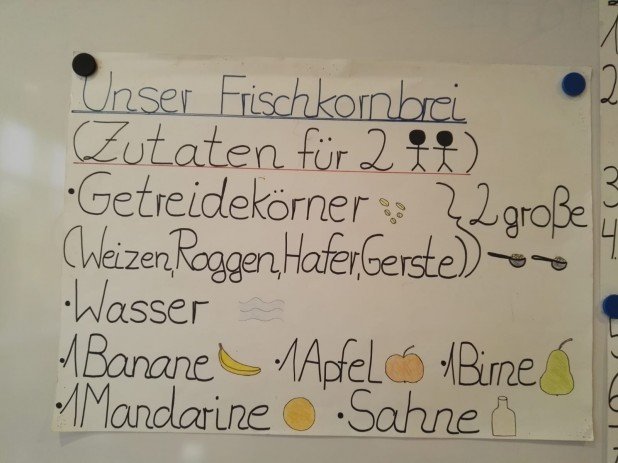 Unser Frischkornbrei
(Zutaten für 2 )
• Getreidekörner } 2 große
(Weizen, Roggen, Hafer, Gerste)
• Wasser
• 1 Banane • 1 Apfel • 1 Birne
• 1 Mandarine • Sahne
1
2
3
4.
5
6
7